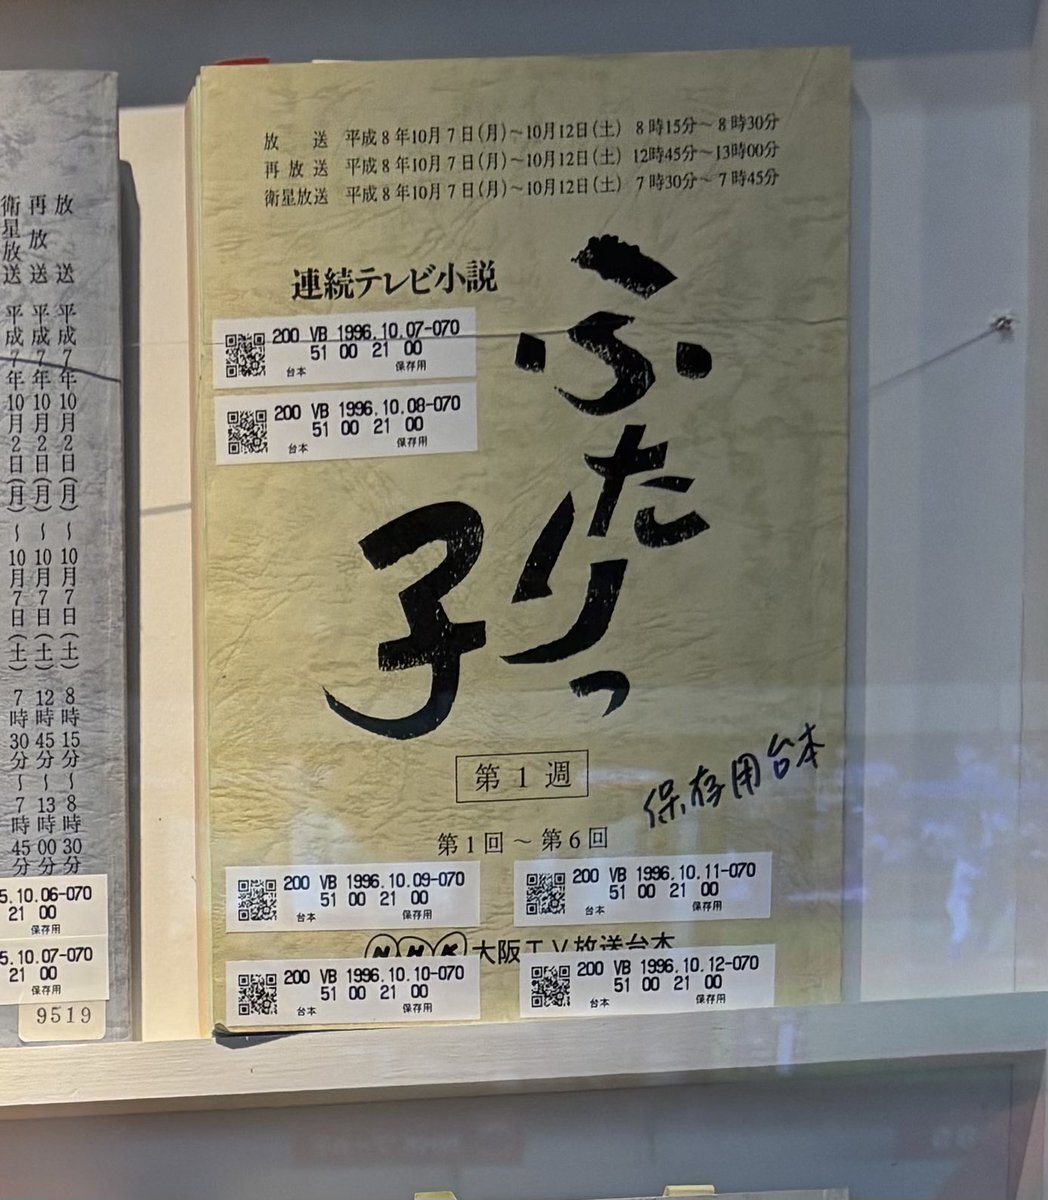 放送 平成7年10月2日(月)～10月7日(土) 8時15分～8時30分
再放送 平成7年10月2日(月)～10月7日(土) 12時45分～13時00分
衛星放送 平成7年10月2日(月)～10月7日(土) 7時30分～7時45分
5.10.06-070
21 00
保存用
5.10.07-070
21 00
保存用
9519
放送 平成8年10月7日(月)～10月12日(土) 8時15分～8時30分
再放送 平成8年10月7日(月)～10月12日(土) 12時45分～13時00分
衛星放送 平成8年10月7日(月)～10月12日(土) 7時30分～7時45分
連続テレビ小説
200 VB 1996.10.07-070
51 00 21 00
台本 保存用
200 VB 1996.10.08-070
51 00 21 00
台本 保存用
ふたりっ
子
第1週
保存用台本
第1回～第6回
200 VB 1996.10.09-070
51 00 21 00
台本 保存用
200 VB 1996.10.11-070
51 00 21 00
台本 保存用
NHK大阪TV放送台本
200 VB 1996.10.10-070
51 00 21 00
台本 保存用
200 VB 1996.10.12-070
51 00 21 00
台本 保存用